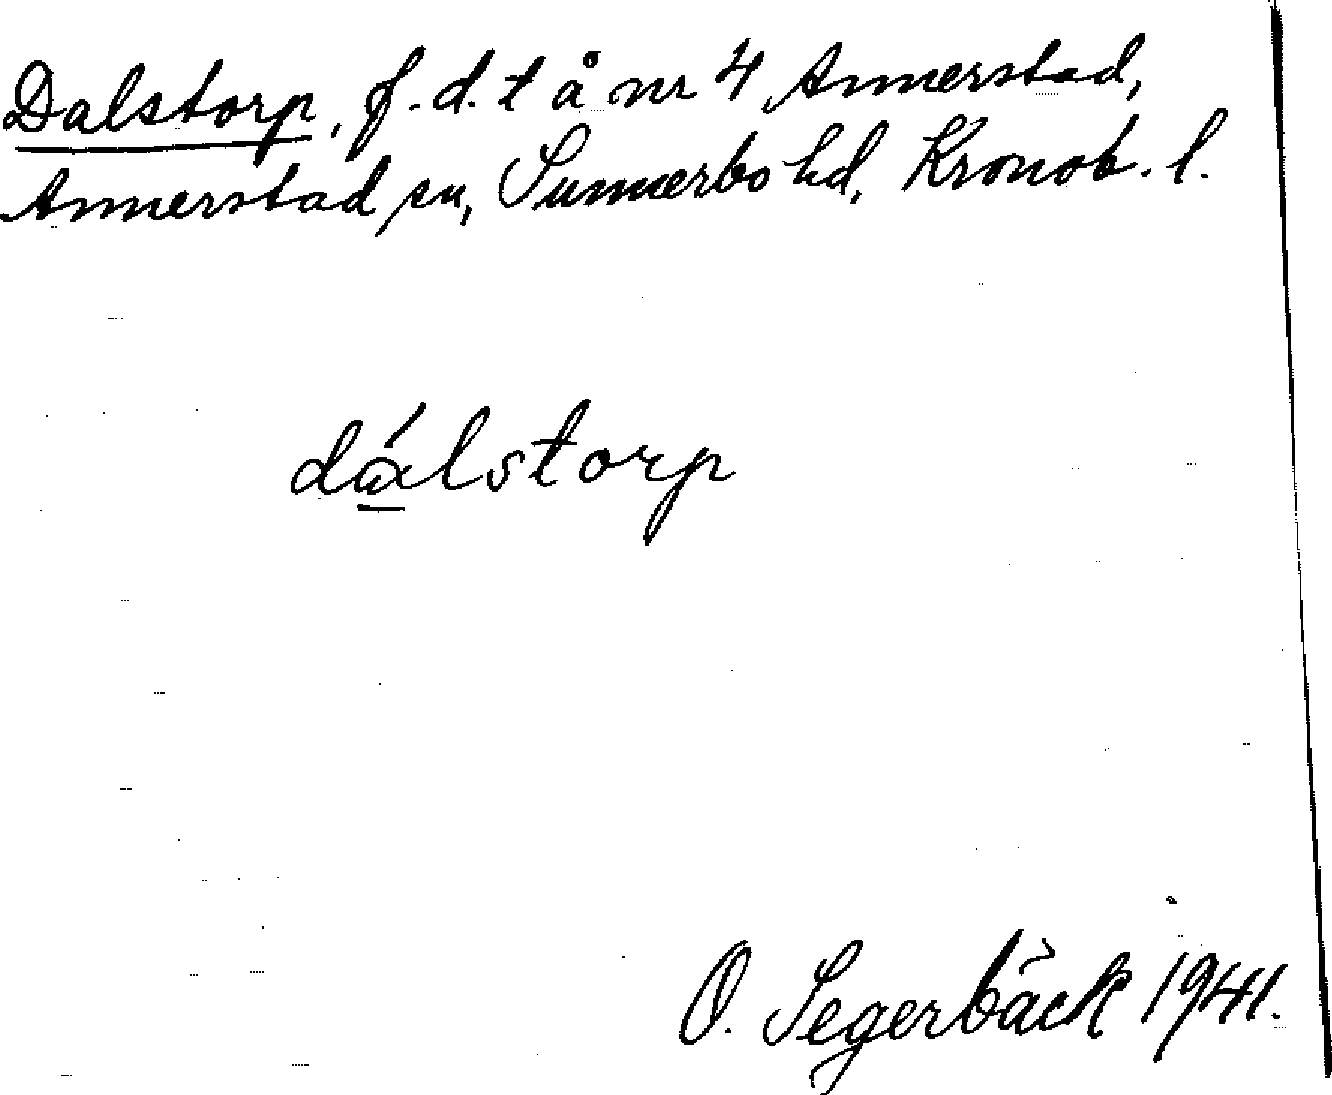 Dalstorp, f.d. t å nr 4 Annerstad,
Annerstad sn, Sunnerbo hd, Kronob. l.
dálstorp
O. Segerbäck 1941.